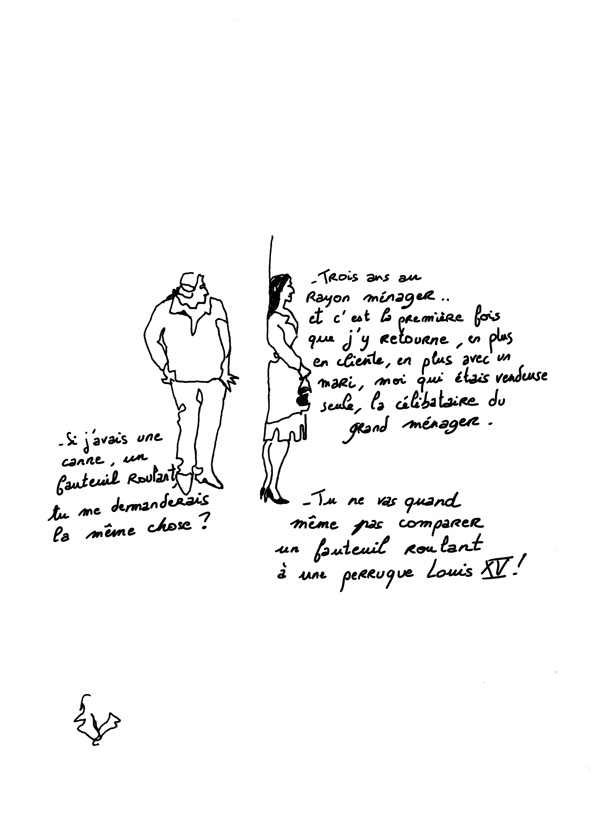 - Trois ans au
Rayon ménager..
et c'est la première fois
que j'y retourne, en plus
en cliente, en plus avec un
mari, moi qui étais vendeuse
seule, la célibataire du
grand ménager.
- Si j'avais une
canne, un
fauteuil roulant
tu me demanderais
la même chose ?
- Tu ne vas quand
même pas comparer
un fauteuil roulant
à une perruque Louis XV !